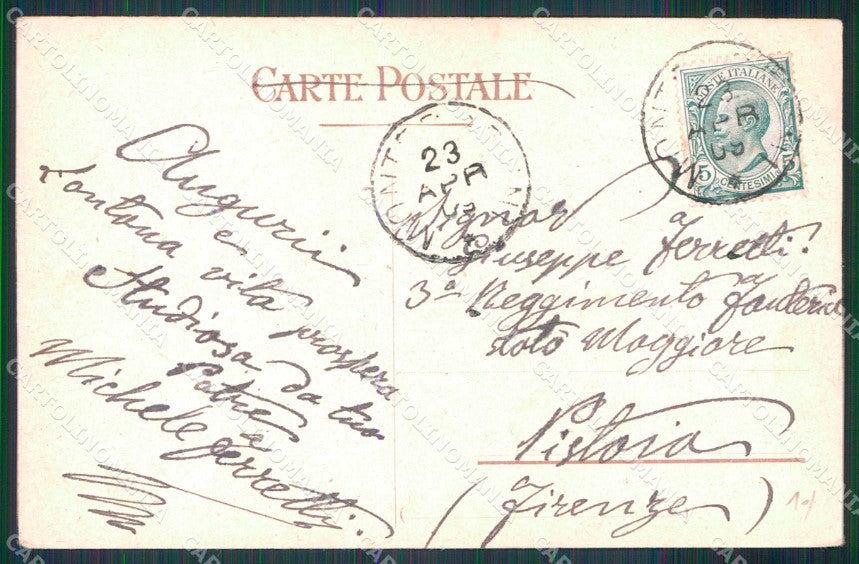 CARTE POSTALE
POSTE ITALIANE
5 CENTESIMI 5
23
APR
Auguri
e
lontana vita prospera
Studiosa da tuo
Padre
Michele Ferretti.
Signor
Giuseppe Ferretti.
3ª Reggimento Fanteria
Stato Maggiore
Pistoia
(Firenze)
CARTOLINOMANIA